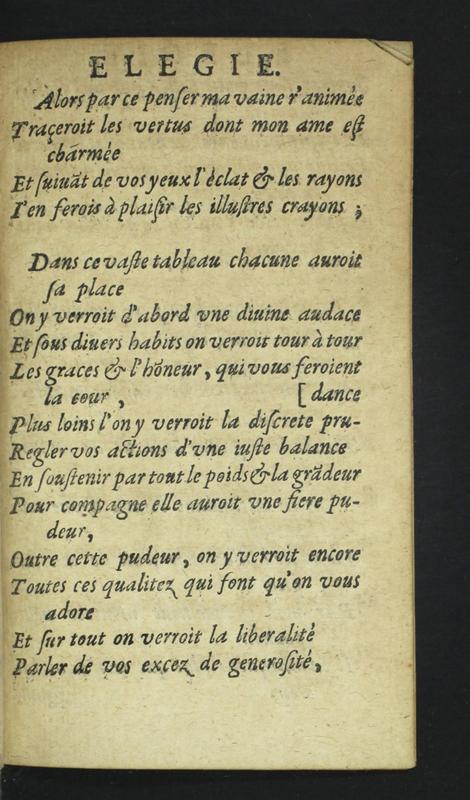 ELEGIE.
Alors par ce penser ma vaine r'animée
Traçeroit les vertus dont mon ame eſt
chãrmée
Et ſuiuãt de vos yeux l'éclat & les rayons
I'en ferois à plaiſir les illuſtres crayons ;
Dans ce vaſte tableau chacune auroit
ſa place
On y verroit d'abord vne diuine audace
Et ſous diuers habits on verroit tour à tour
Les graces & l'hõneur, qui vous feroient
la cour , [ dance
Plus loins l'on y verroit la diſcrete pru-
Regler vos actions d'vne iuſte balance
En ſouſtenir par tout le poids & la grãdeur
Pour compagne elle auroit vne fiere pu-
deur,
Outre cette pudeur, on y verroit encore
Toutes ces qualitez qui font qu'on vous
adore
Et ſur tout on verroit la liberalité
Parler de vos excez de generoſité,